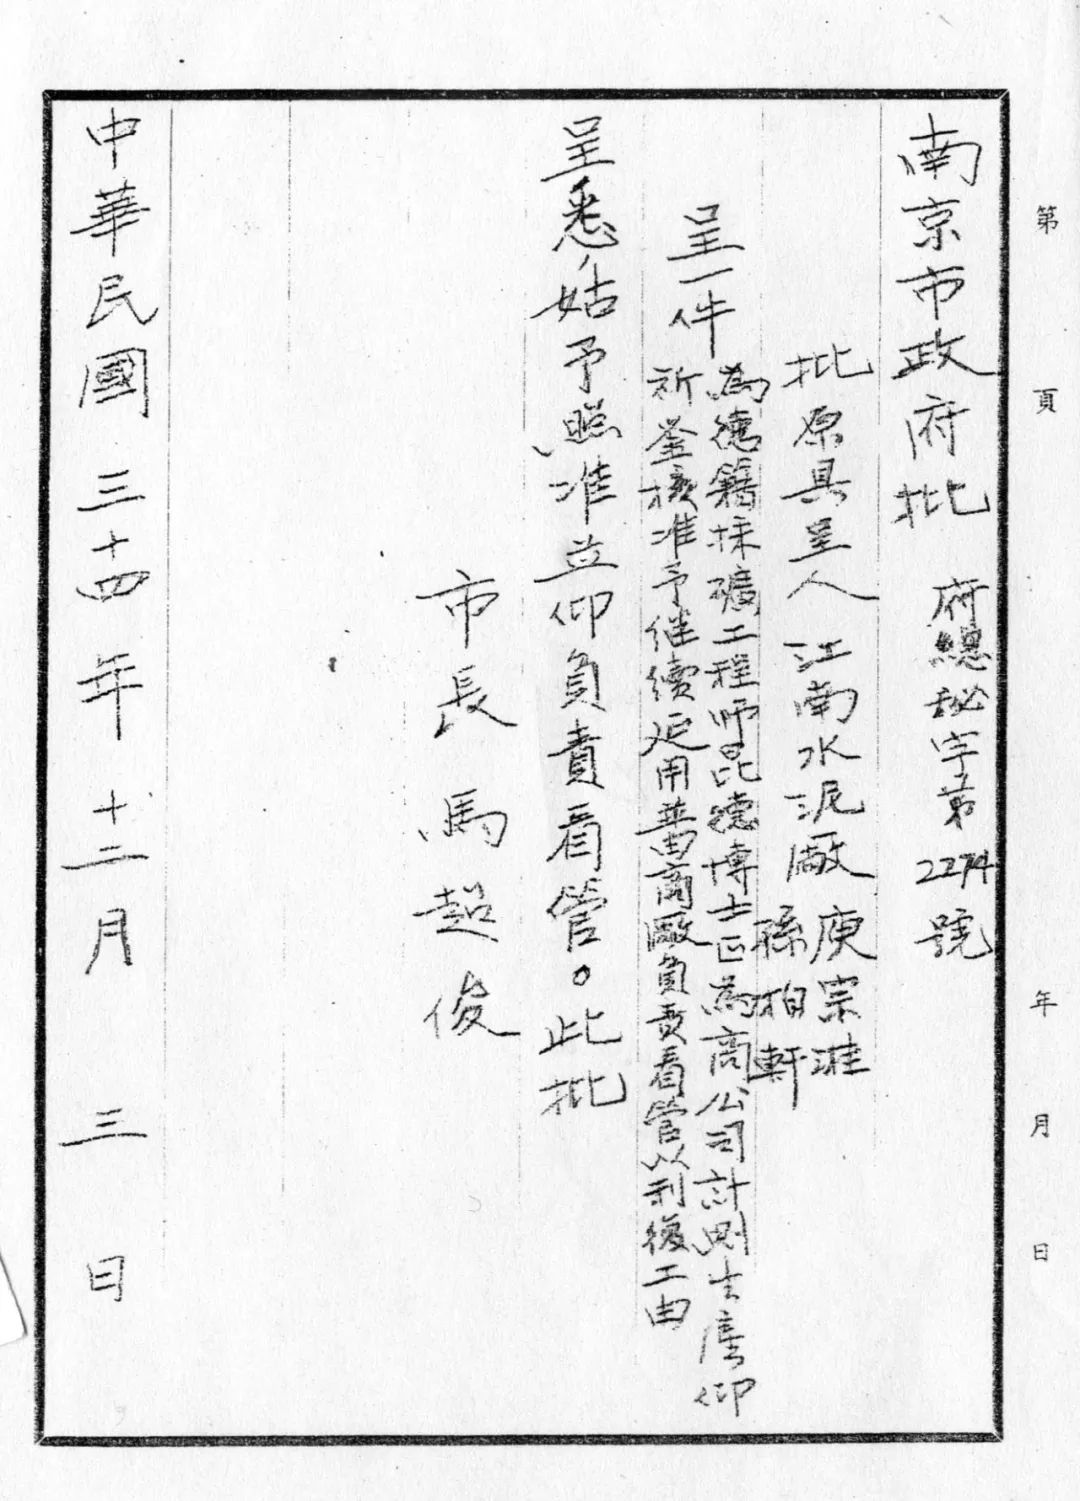 第 頁 年 月 日
南京市政府批 府總秘字第2274號
批原具呈人 江南水泥廠 庾宗溎
孫柏軒
呈一件 為德籍採礦工程師昆德博士正為商公司計劃 仰
祈鉴核准予继續延用並由商廠負责看管以利復工由
呈悉,姑予照准並仰負責看管。此批
市長 馬超俊
中華民國 三十四年 十二月 三 日